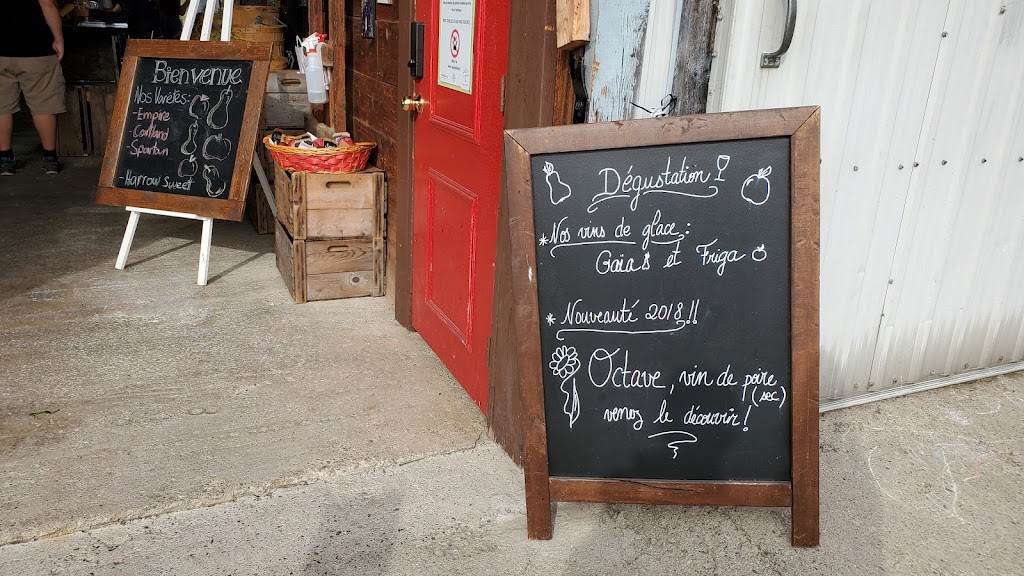 Bienvenue
Nos Varétés:
- Empire
- Cortland
- Spartan
- Harrow Sweet
Dégustation
* Nos vins de glace:
Gaia et Friga
* Nouveauté 2018!!
Octave, vin de poire
(sec)
venez le découvrir!